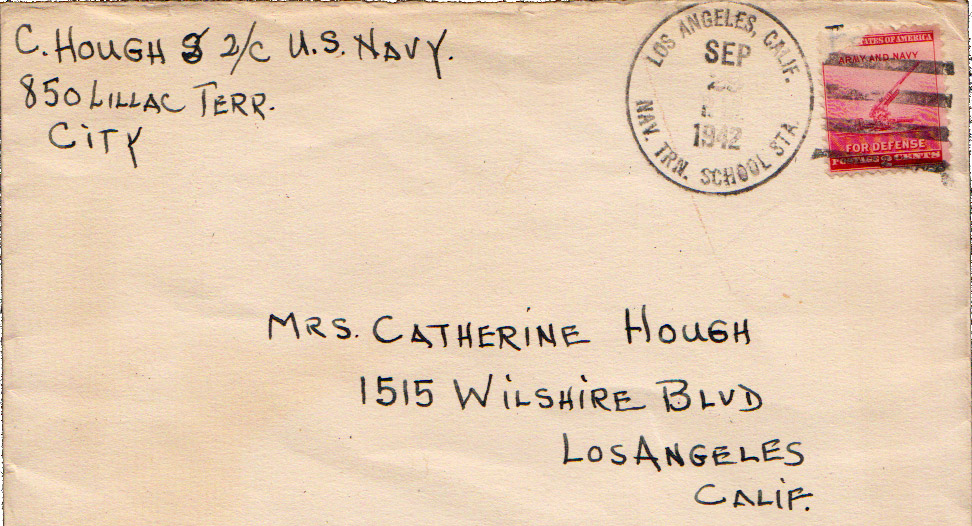 C. HOUGH S 2/C U.S. NAVY.
850 LILLAC TERR.
CITY
LOS ANGELES, CALIF.
SEP
1942
NAV. TRN. SCHOOL STA.
STATES OF AMERICA
ARMY AND NAVY
FOR DEFENSE
POSTAGE 2 CENTS
MRS. CATHERINE HOUGH
1515 WILSHIRE BLVD
LOS ANGELES
CALIF.